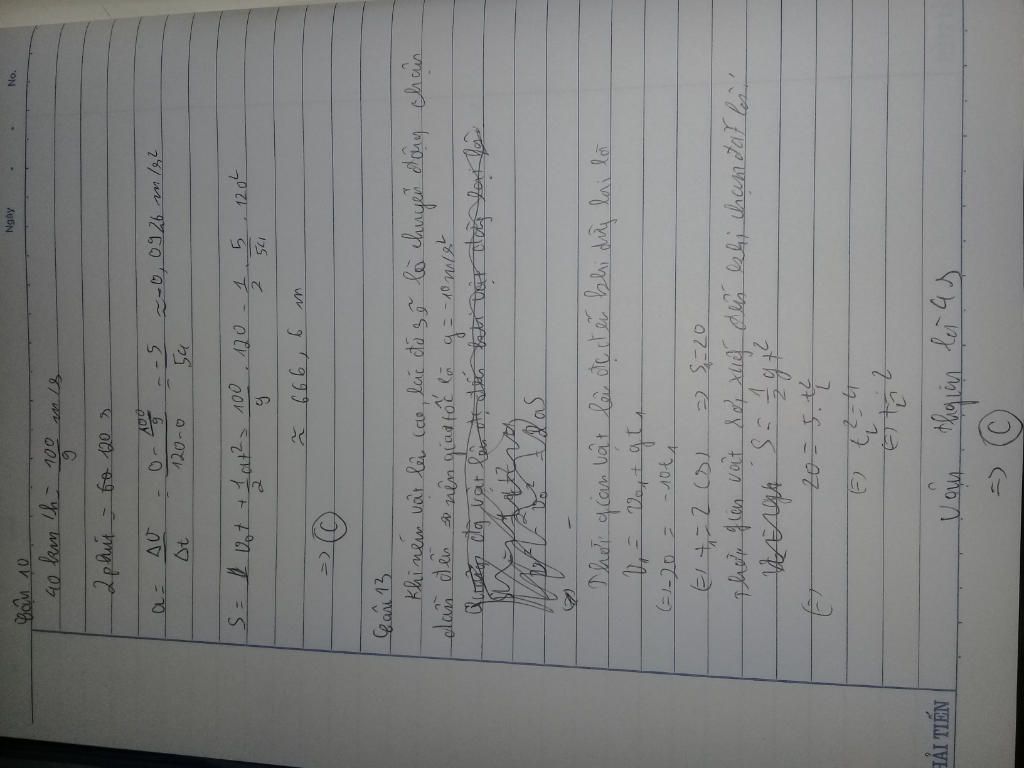 Ngày . . No.
Câu 10
40 km/h = 100/9 m/s
2 phút = 60 120 s
a = Δv/Δt = (0 - 100/9)/(120-0) = -5/54 ≈ -0,0926 m/s²
S = v₀t + 1/2 at² = 100/9 . 120 - 1/2 . 5/54 . 120²
≈ 666,6 m
=> C
Câu 13
Khi ném vật lên cao, lúc đó sẽ là chuyển động chậm
dần đều nên gia tốc là g = -10 m/s²
Thời gian vật lên đạt đến khi dừng lại là
V₁ = V₀₁ + gt₁
(=) -20 = -10t₁
(=) t₁ = 2 (s) => S = 20
Thời gian vật rơi xuống đến khi chạm đất là:
S = 1/2 gt²
(=) 20 = 5. t₂²
(=) t₂² = 4
(=) t₂ = 2
Vậy thời gian là 4s
=> C
HẢI TIẾN